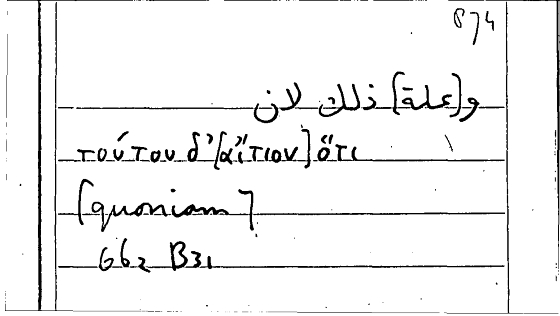 874
و[علة] ذلك لان
τούτου δ' [αἴτιον] ὅτι
[quoniam]
662 B31